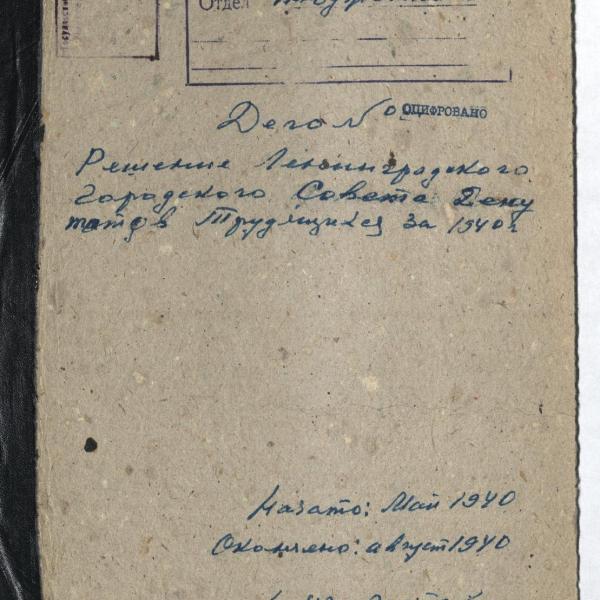 Отдел
Дело №
ОЦИФРОВАНО
Решение Ленинградского
Городского Совета Депу
татов Трудящихся за 1940 г
Начато: Май 1940
Окончено: август 1940